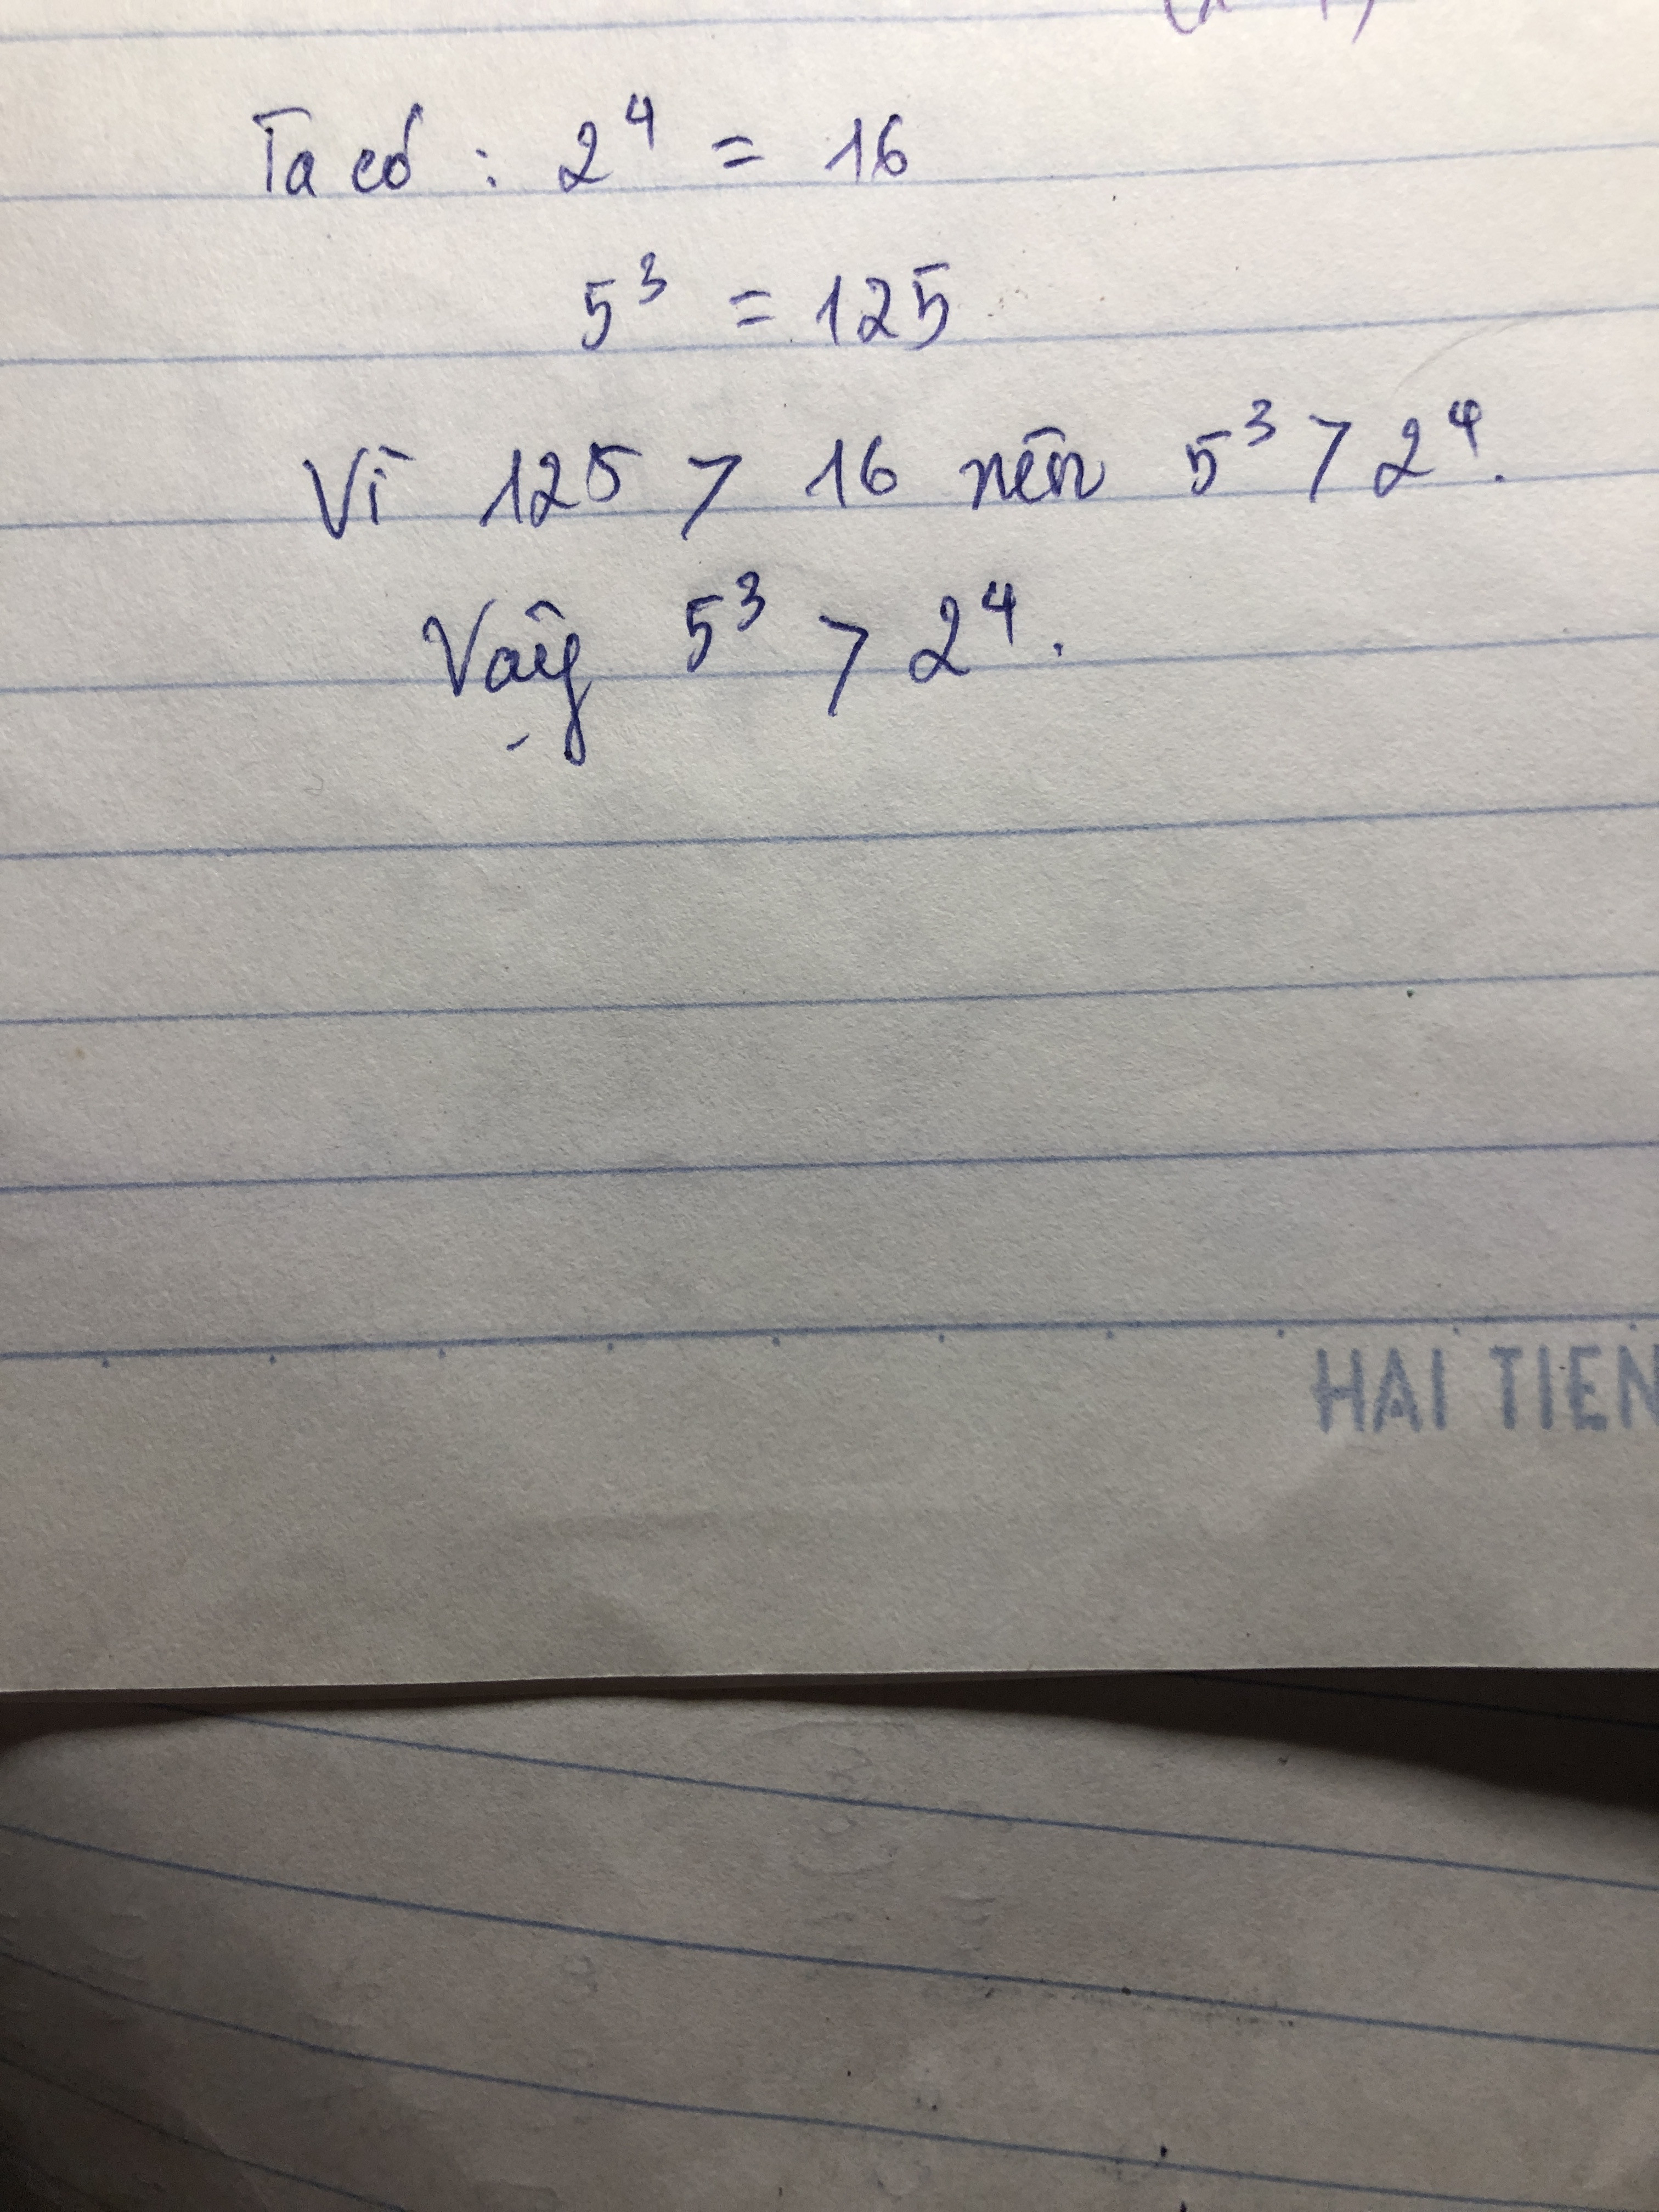 Ta có : 2⁴ = 16
5³ = 125
Vì 125 > 16 nên 5³ > 2⁴.
Vậy 5³ > 2⁴.
HAI TIEN